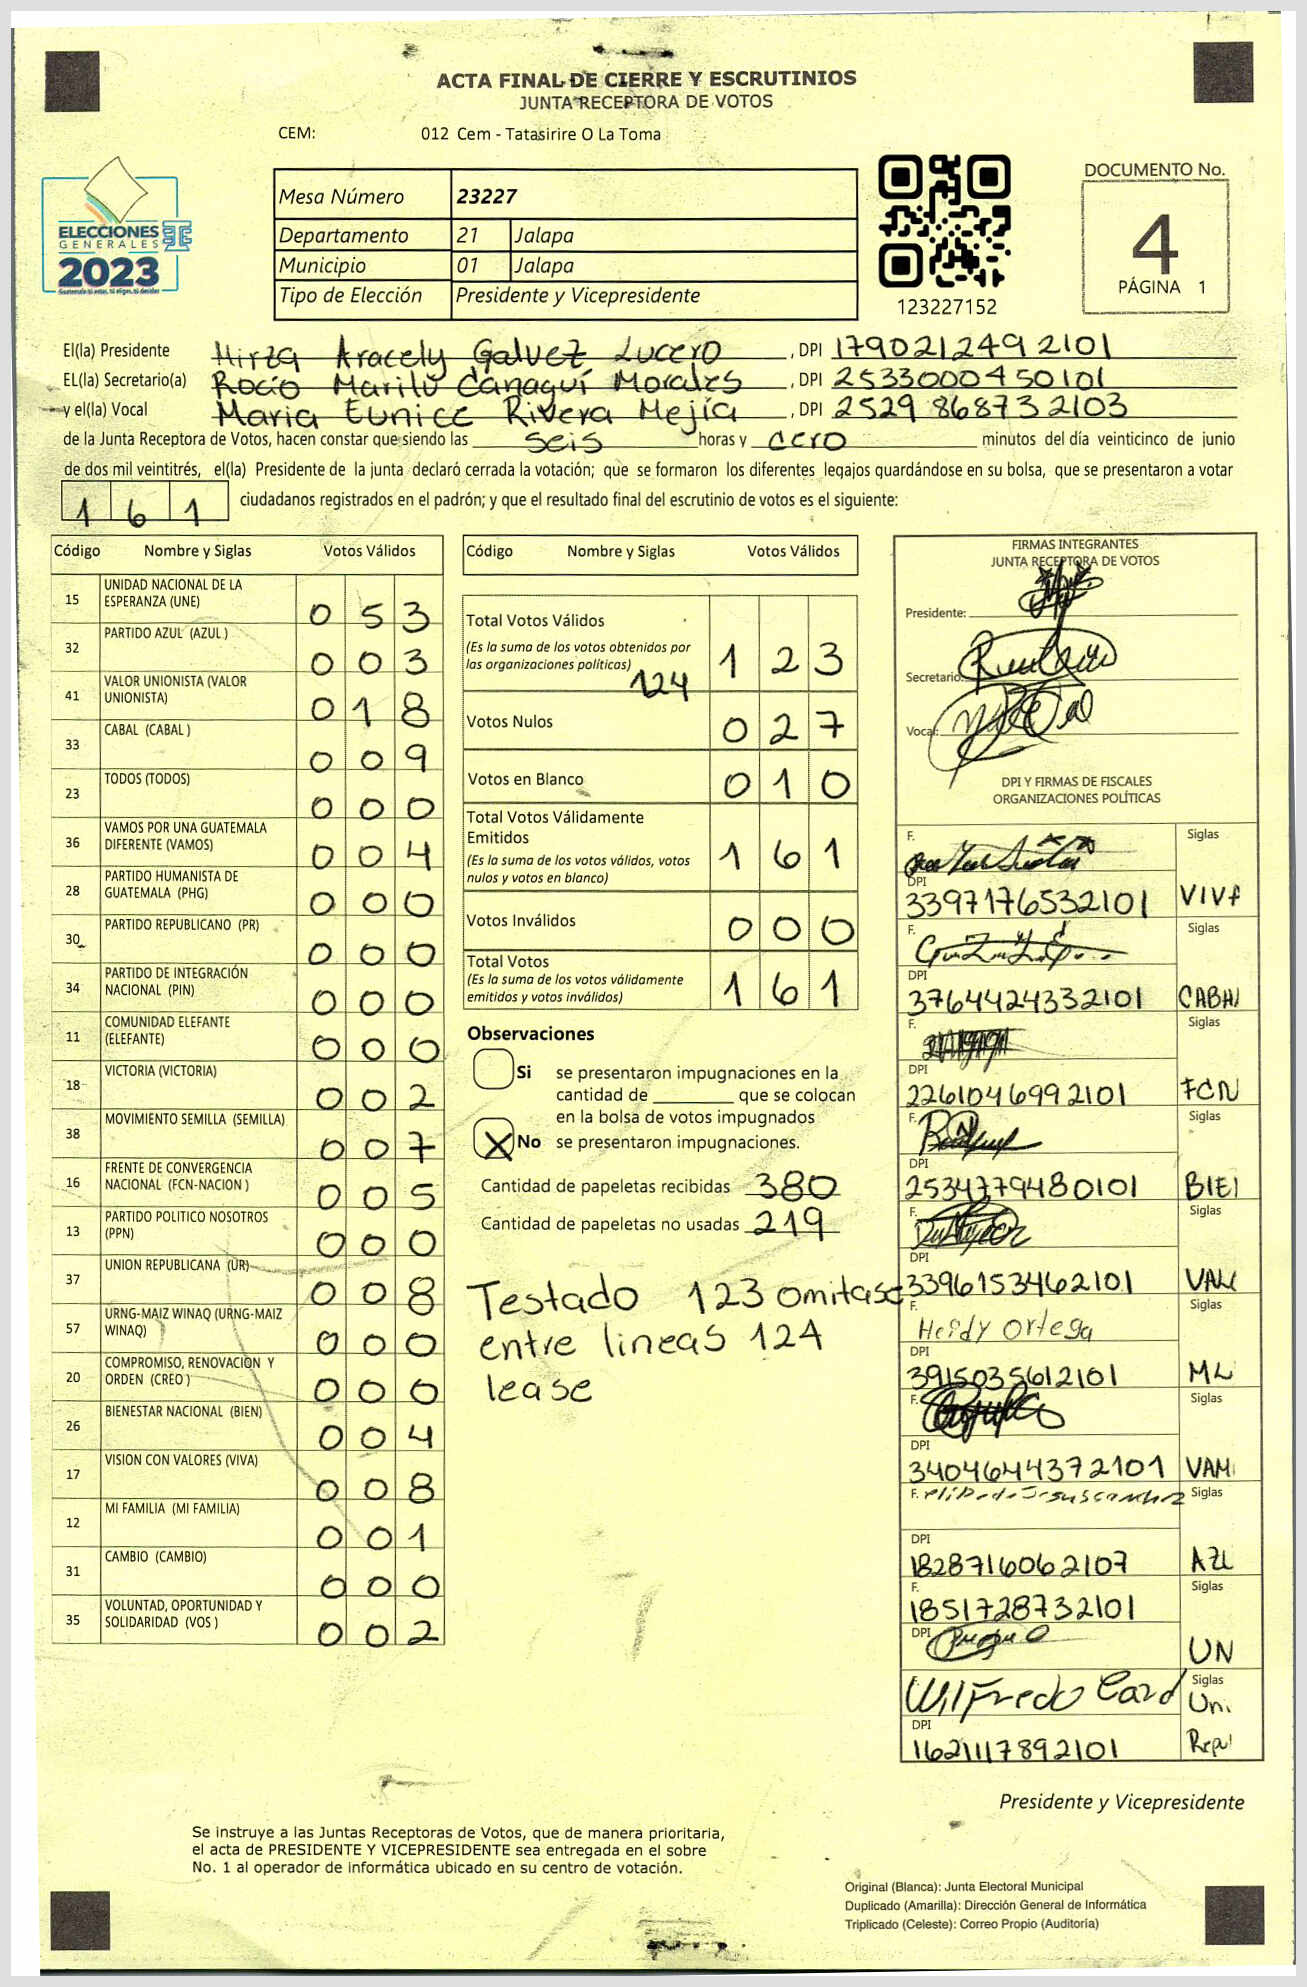 ACTA FINAL DE CIERRE Y ESCRUTINIOS
JUNTA RECEPTORA DE VOTOS
CEM: 012 Cem - Tatasirire O La Toma
ELECCIONES
GENERALES
2023
Mesa Número 23227
Departamento 21 Jalapa
Municipio 01 Jalapa
Tipo de Elección Presidente y Vicepresidente
123227152
DOCUMENTO No.
4
PÁGINA 1
El(la) Presidente Mirza Aracely Galvez Lucero, DPI 1790212492101
EL(la) Secretario(a) Rocio Marilú Canaguí Morales, DPI 2533000450101
y el(la) Vocal Maria Eunice Rivera Mejía, DPI 2529868732103
de la Junta Receptora de Votos, hacen constar que siendo las seis horas y cero minutos del día veinticinco de junio
de dos mil veintitrés, el(la) Presidente de la junta declaró cerrada la votación; que se formaron los diferentes legajos quardándose en su bolsa, que se presentaron a votar
161 ciudadanos registrados en el padrón; y que el resultado final del escrutinio de votos es el siguiente:
Código Nombre y Siglas Votos Válidos
15 UNIDAD NACIONAL DE LA
ESPERANZA (UNE) 053
32 PARTIDO AZUL (AZUL ) 003
41 VALOR UNIONISTA (VALOR
UNIONISTA) 018
33 CABAL (CABAL ) 009
23 TODOS (TODOS) 000
36 VAMOS POR UNA GUATEMALA
DIFERENTE (VAMOS) 004
28 PARTIDO HUMANISTA DE
GUATEMALA (PHG) 000
30 PARTIDO REPUBLICANO (PR) 000
34 PARTIDO DE INTEGRACIÓN
NACIONAL (PIN) 000
11 COMUNIDAD ELEFANTE
(ELEFANTE) 000
18 VICTORIA (VICTORIA) 002
38 MOVIMIENTO SEMILLA (SEMILLA) 007
16 FRENTE DE CONVERGENCIA
NACIONAL (FCN-NACION ) 005
13 PARTIDO POLITICO NOSOTROS
(PPN) 000
37 UNION REPUBLICANA (UR) 008
57 URNG-MAIZ WINAQ (URNG-MAIZ
WINAQ) 000
20 COMPROMISO, RENOVACION Y
ORDEN (CREO ) 000
26 BIENESTAR NACIONAL (BIEN) 004
17 VISION CON VALORES (VIVA) 008
12 MI FAMILIA (MI FAMILIA) 001
31 CAMBIO (CAMBIO) 000
35 VOLUNTAD, OPORTUNIDAD Y
SOLIDARIDAD (VOS ) 002
Código Nombre y Siglas Votos Válidos
Total Votos Válidos
(Es la suma de los votos obtenidos por
las organizaciones políticas) 123
124
Votos Nulos 027
Votos en Blanco 010
Total Votos Válidamente
Emitidos
(Es la suma de los votos válidos, votos
nulos y votos en blanco) 161
Votos Inválidos 000
Total Votos
(Es la suma de los votos válidamente
emitidos y votos inválidos) 161
Observaciones
Si se presentaron impugnaciones en la
cantidad de ________ que se colocan
en la bolsa de votos impugnados
X No se presentaron impugnaciones.
Cantidad de papeletas recibidas 380
Cantidad de papeletas no usadas 219
Testado 123 omitase
entre lineas 124
lease
FIRMAS INTEGRANTES
JUNTA RECEPTORA DE VOTOS
Presidente:
Secretario:
Vocal:
DPI Y FIRMAS DE FISCALES
ORGANIZACIONES POLÍTICAS
F. Siglas
DPI
3397176532101 VIVA
F. Siglas
DPI
3764424332101 CABAL
F. Siglas
DPI
2261046992101 FCN
F. Siglas
DPI
2534779480101 BIEI
F. Siglas
DPI
3396153462101 VALL
F. Heidy Ortega Siglas
DPI
3915035612101 ML
F. Siglas
DPI
3404644372101 VAM
F. Siglas
DPI
1828716062107 AZL
F. Siglas
1851728732101
DPI
UN
Wilfredo Card Siglas
Uni.
DPI
1621117892101 Repu
Presidente y Vicepresidente
Se instruye a las Juntas Receptoras de Votos, que de manera prioritaria,
el acta de PRESIDENTE Y VICEPRESIDENTE sea entregada en el sobre
No. 1 al operador de informática ubicado en su centro de votación.
Original (Blanca): Junta Electoral Municipal
Duplicado (Amarilla): Dirección General de Informática
Triplicado (Celeste): Correo Propio (Auditoría)